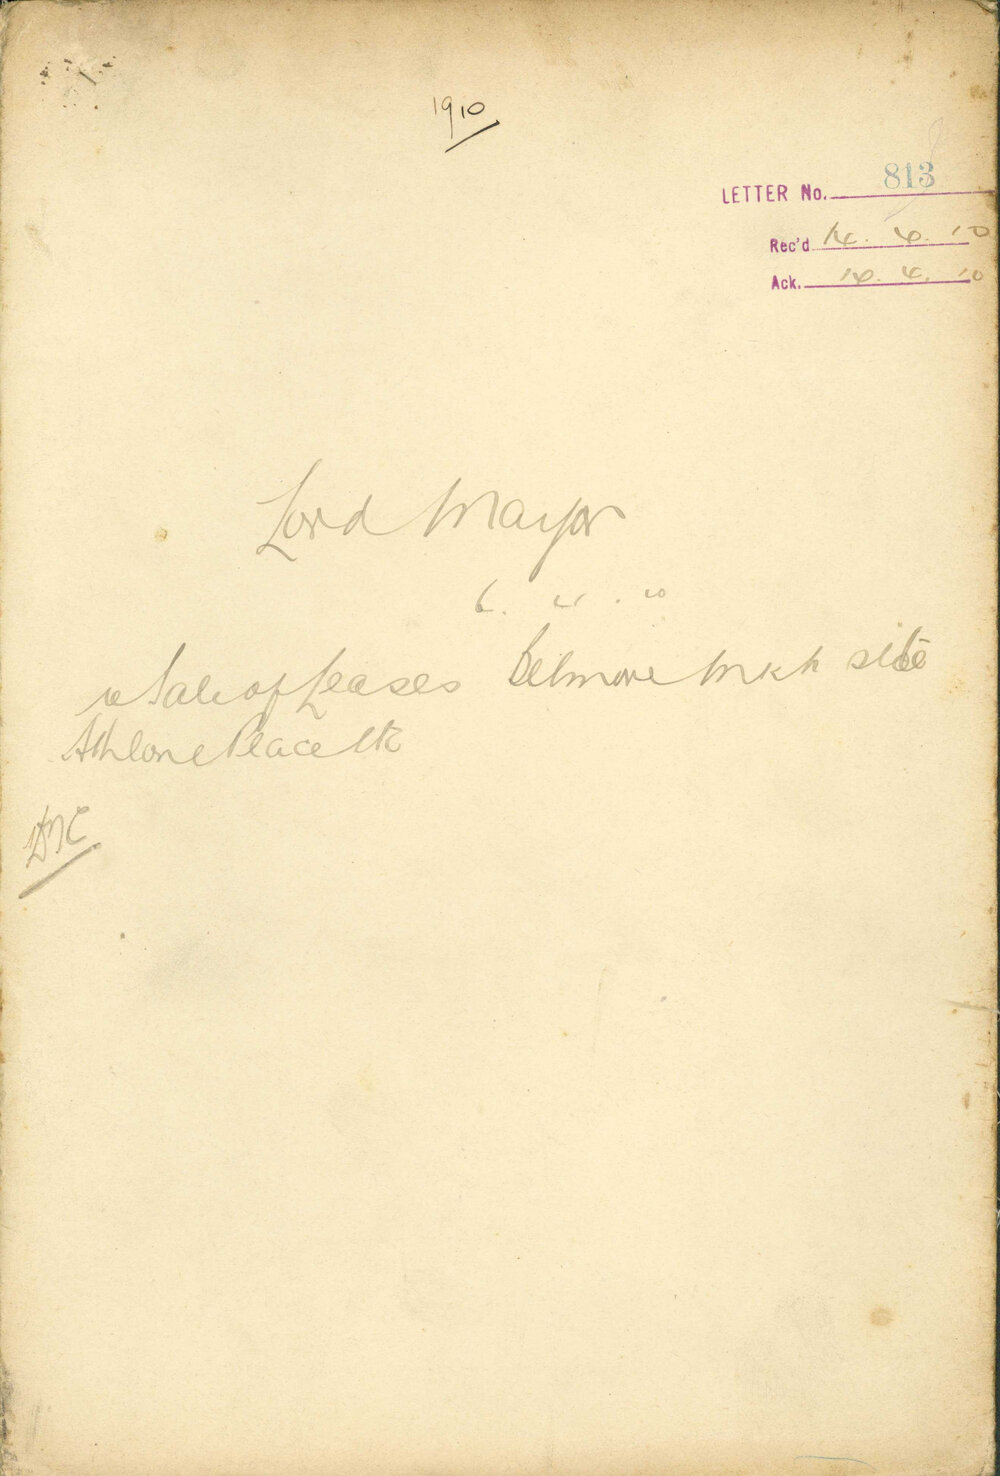 1910
LETTER No. 813
Rec'd 14. 4. 10
Ack. 14. 4. 10
Lord Mayor
6. 4. 10
re Sale of Leases Belmore Mkt site
Athlone Place etc